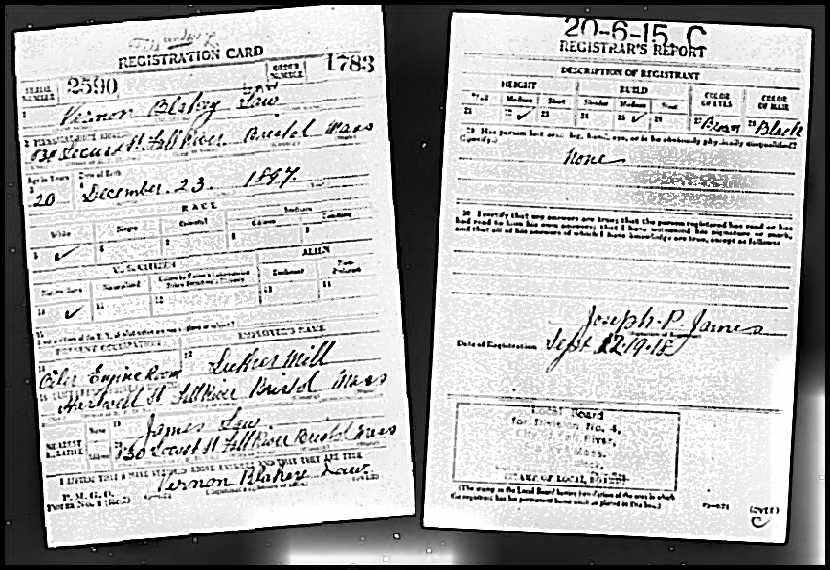 REGISTRATION CARD
SERIAL NUMBER 2590 ORDER NUMBER 1783
1 Vernon Blakey Law
2 PERMANENT HOME ADDRESS
Locust St Fall River Bristol Mass
Age in Years Date of Birth
3 20 4 December 23 1897
RACE
White Negro Oriental Indian
Citizen
5 ✓ 6 7 8 9
U. S. CITIZEN ALIEN
Native Born Naturalized Declarant
10 ✓ 11 12 13 14
15
PRESENT OCCUPATION EMPLOYER'S NAME
16 Oiler Engine Room 17 Mill
St Fall River Bristol Mass
NEAREST RELATIVE Name 19 James Law
Address 20 Locust St Fall River Bristol Mass
I AFFIRM THAT I HAVE VERIFIED ABOVE ANSWERS AND THAT THEY ARE TRUE
P. M. G. O.
Form No. 1 Vernon Blakey Law
20-6-15 C
REGISTRAR'S REPORT
DESCRIPTION OF REGISTRANT
HEIGHT BUILD COLOR OF EYES COLOR OF HAIR
Tall Medium Short Slender Medium Stout
21 22 ✓ 23 24 25 ✓ 26 27 Brown 28 Black
29 Has person lost arm, leg, hand, eye, or is he obviously physically disqualified?
(Specify.)
None
30 I certify that my answers are true; that the person registered has read or has
had read to him his own answers; that I have witnessed his signature or mark,
and that all of his answers of which I have knowledge are true, except as follows:
Joseph P James
Date of Registration Sept 12-1918
Local Board
for Division No. 4,
City of Fall River,
Mass.
STAMP OF LOCAL BOARD
(The stamp of the Local Board having jurisdiction of the area in which
the registrant has his permanent home shall be placed in this box.)
(OVER)